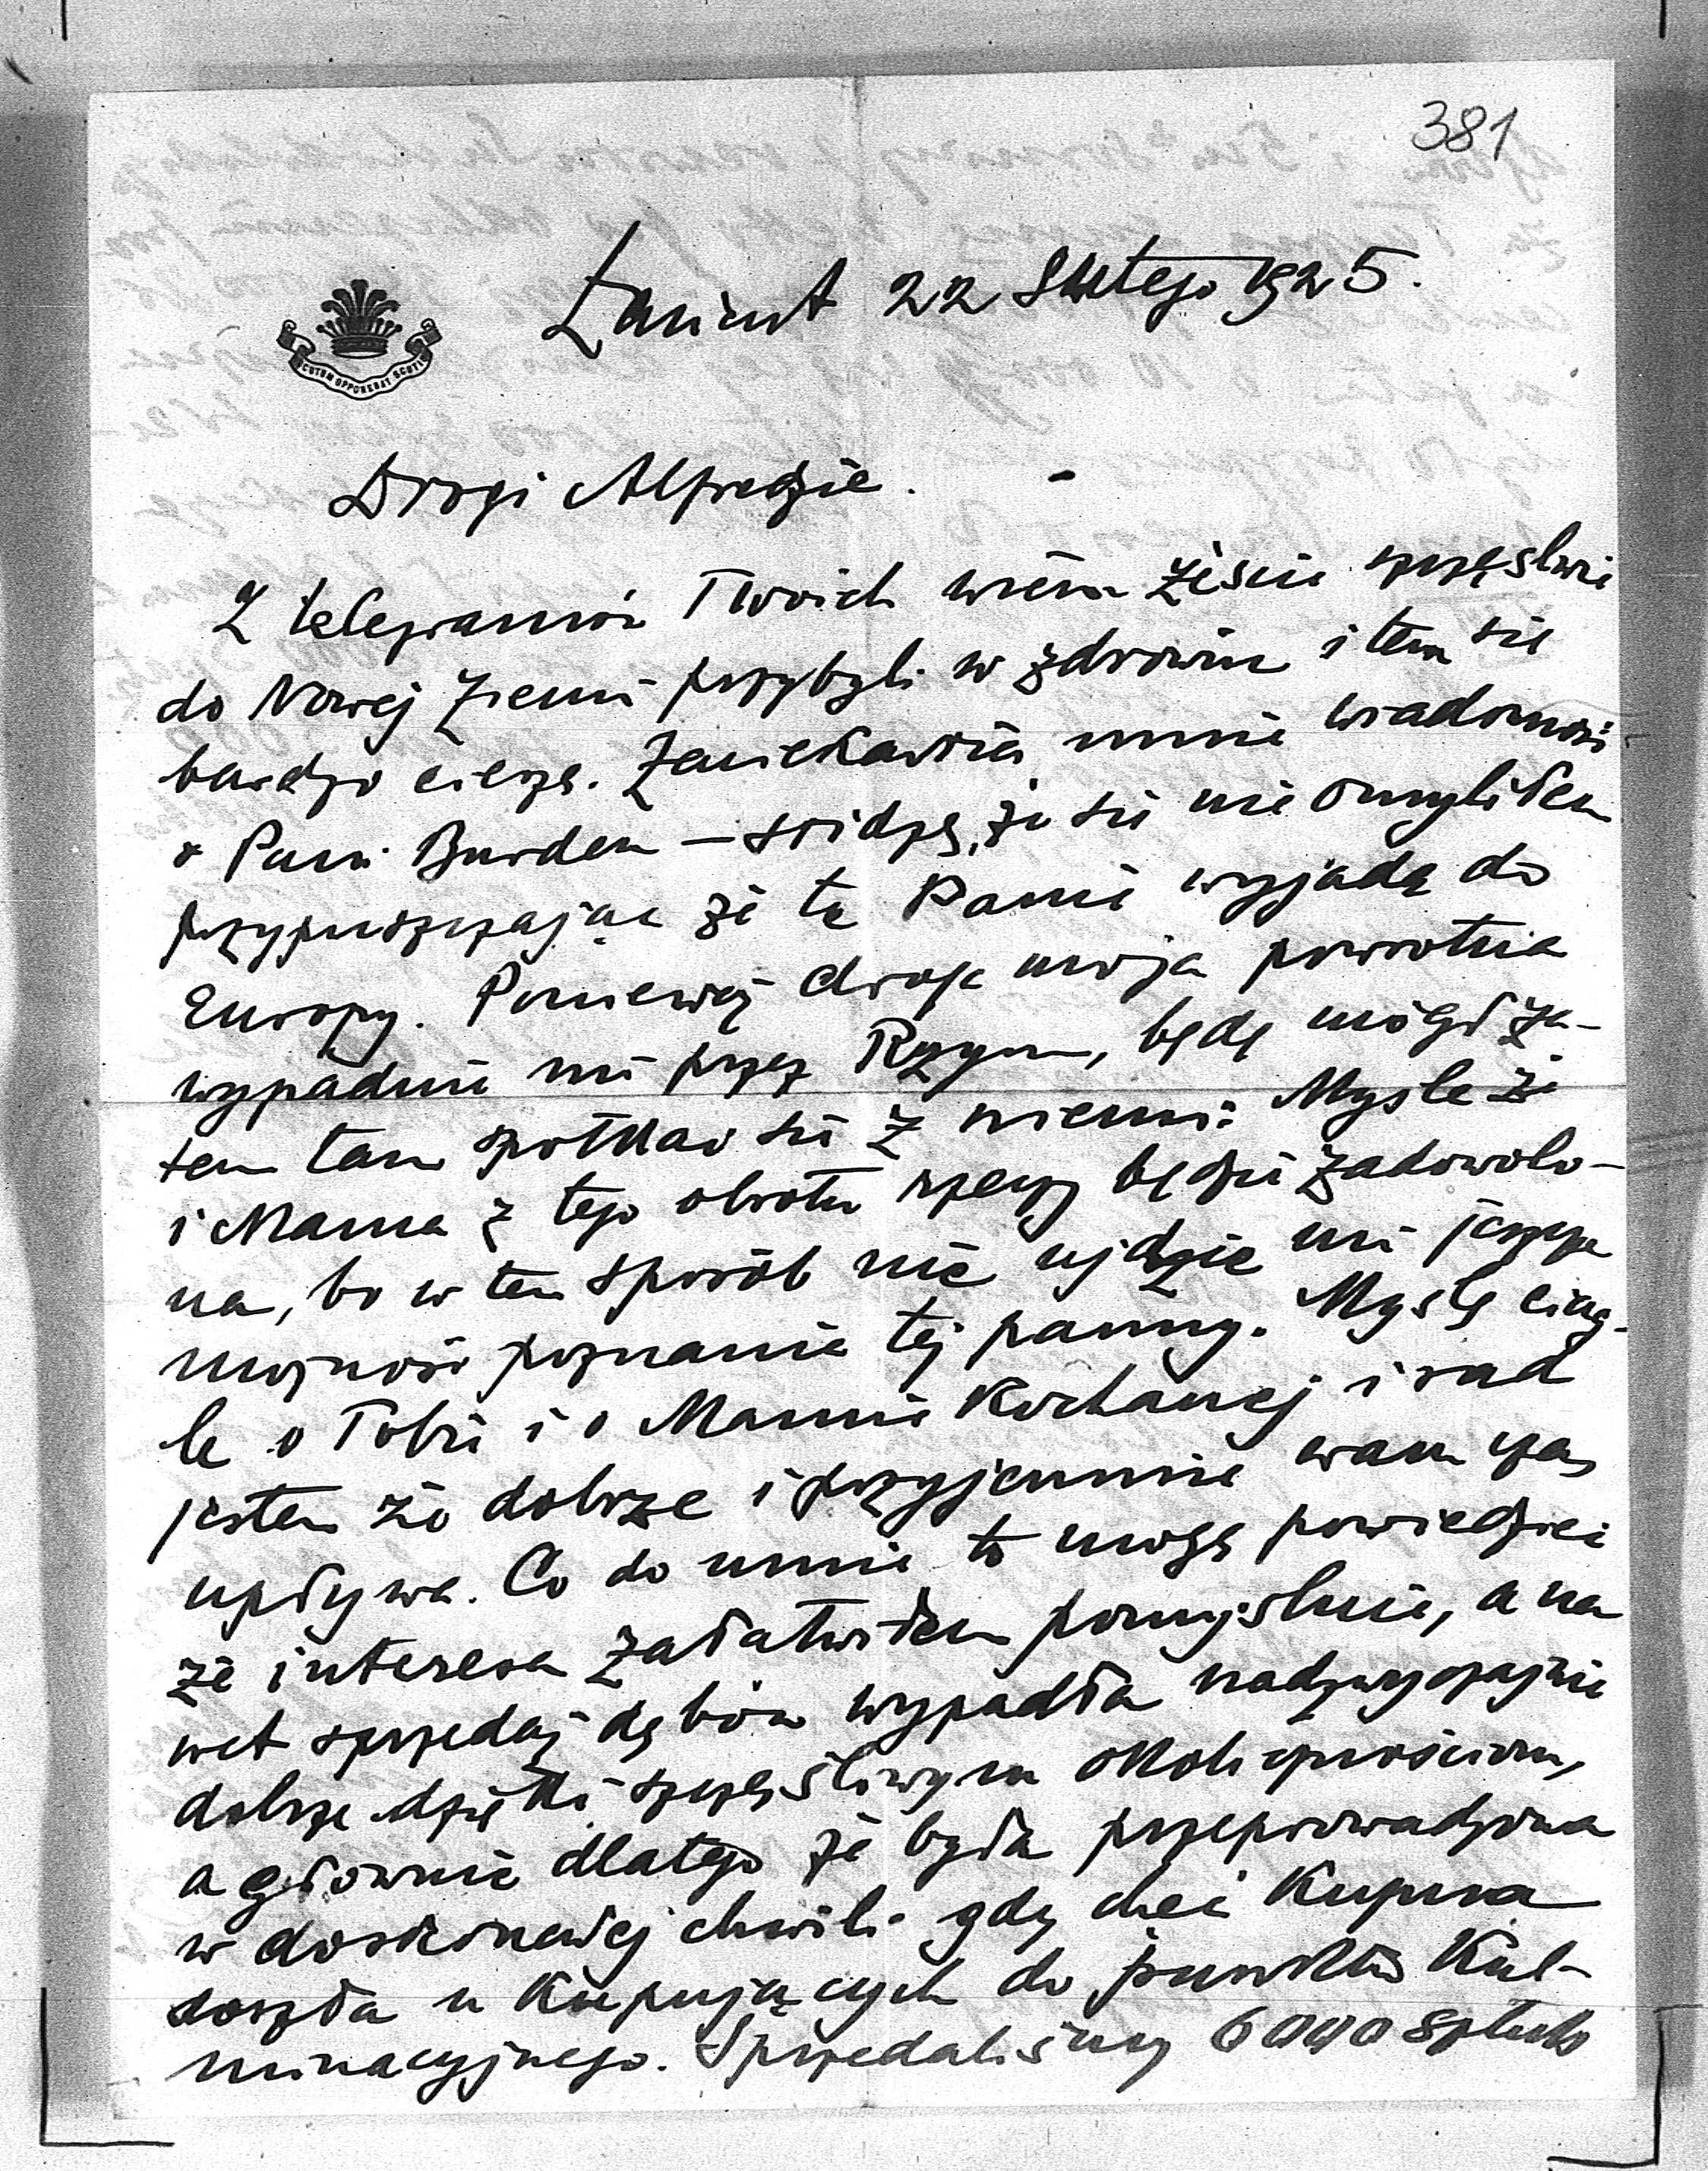 381
Łańcut 22 Lutego 1925.
SCUTUM OPPONEBAT SCUTIS
Drogi Alfredzie.
Z telegramów Twoich wiem żeście szczęśliwie
do Nowej Ziemi przybyli w zdrowiu i tem się
bardzo cieszę. Zaciekawia mnie wiadomość
o Pani Burden – widzę, że się nie omyliłem
przypuszczając że te Panie wyjadą do
Europy. Ponieważ droga moja powrotna
wypadnie mi przez Rzym, będę mógł za-
tem tam spotkać się z niemi. Myślę że
i Mama z tego obrotu rzeczy będzie zadowolo-
na, bo w ten sposób nie ujdzie mi jeszcze
możność poznania tej panny. Myślę ciąg-
le o Tobie i o Mamie Kochanej i rad
jestem że dobrze i przyjemnie wam czas
upływa. Co do mnie to mogę powiedzieć
że interesa załatwiłem pomyślnie, a na
wet sprzedaż dębów wypadła nadzwyczajnie
dobrze dzięki szczęśliwym okolicznościom,
a głównie dlatego że była przeprowadzona
w doskonałej chwili gdy chęć Kupna
doszła u Kupujących do punktu Kul-
minacyjnego. Sprzedaliśmy 6000 sztuk